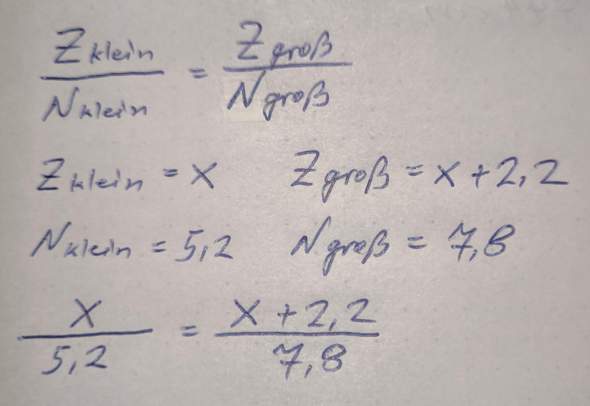 Z klein / N klein = Z groß / N groß
Z klein = x   Z groß = x + 2,2
N klein = 5,2   N groß = 7,8
x / 5,2 = x + 2,2 / 7,8